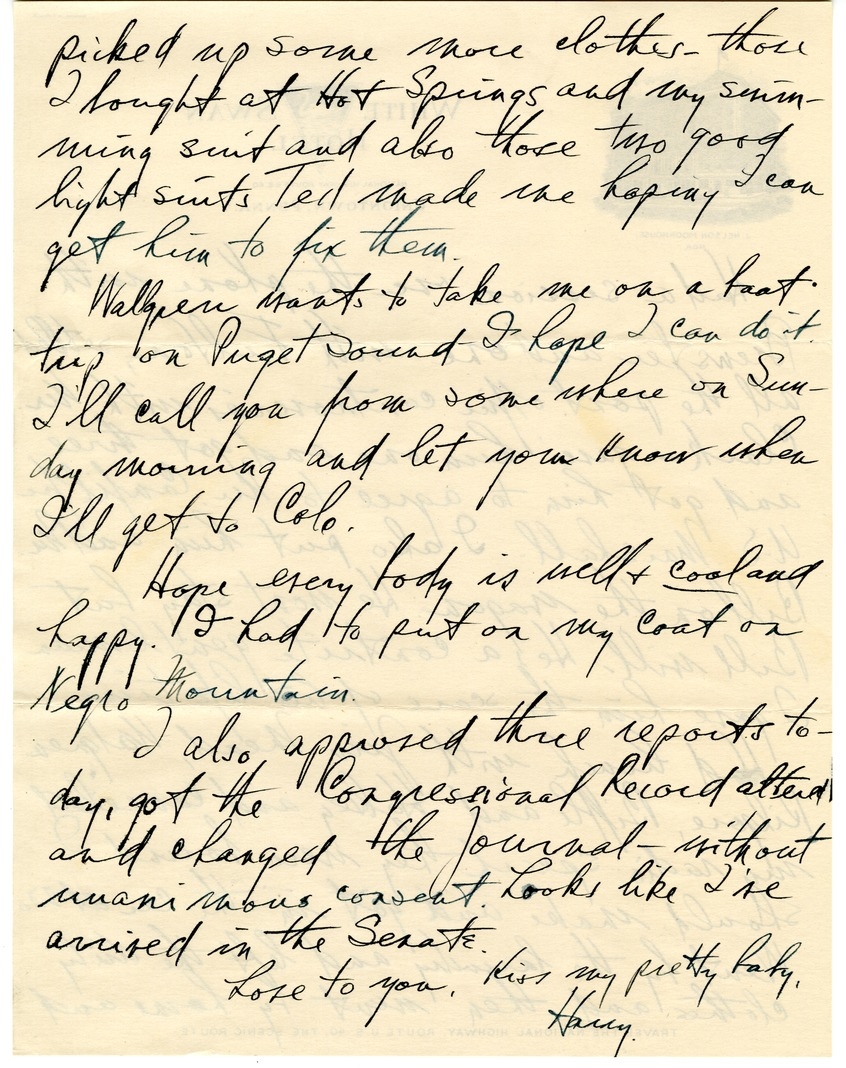 picked up some more clothes - those
I bought at Hot Springs and my swim-
ming suit and also those two good
light suits Ted made me hoping I can
get him to fix them.
Wallgren wants to take me on a boat
trip on Puget Sound I hope I can do it.
I'll call you from some where on Sun-
day morning and let you know when
I'll get to Colo.
Hope every body is well & cool and
happy. I had to put on my coat on
Negro Mountain.
I also approved three reports to-
day, got the Congressional Record altered
and changed the Journal - without
unanimous consent. Looks like I've
arrived in the Senate.
Love to you. Kiss my pretty baby.
Harry.